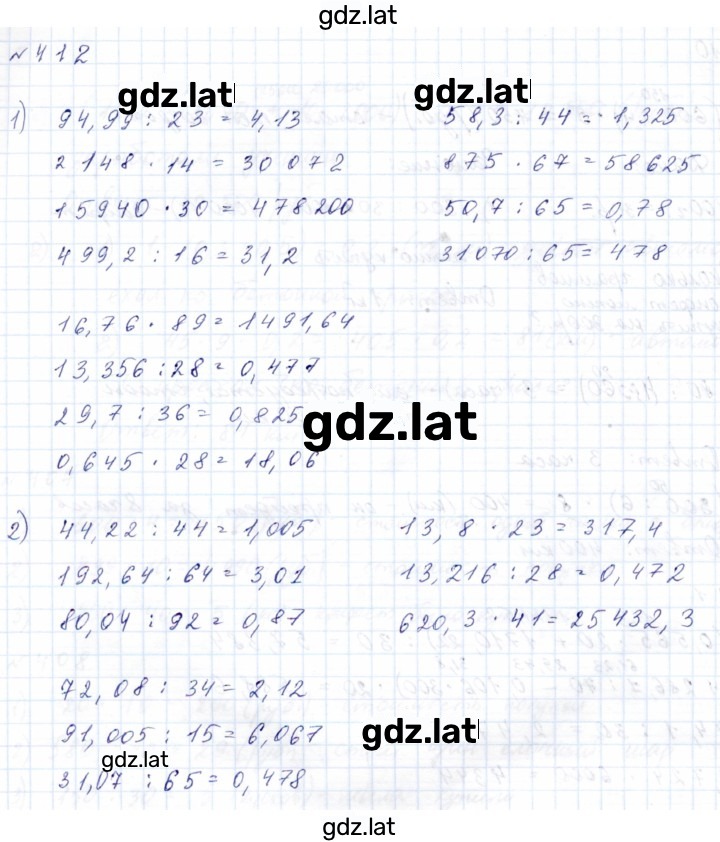 gdz.lat
№412
gdz.lat
gdz.lat
1) 94,99 : 23 = 4,13
58,3 : 44 = 1,325
2148 · 14 = 30 072
875 · 67 = 58625
15940 · 30 = 478200
50,7 : 65 = 0,78
499,2 : 16 = 31,2
31070 : 65 = 478
16,76 · 89 = 1491,64
13,356 : 28 = 0,477
29,7 : 36 = 0,825
gdz.lat
0,645 · 28 = 18,06
2) 44,22 : 44 = 1,005
13,8 · 23 = 317,4
192,64 : 64 = 3,01
13,216 : 28 = 0,472
80,04 : 92 = 0,87
620,3 · 41 = 25432,3
72,08 : 34 = 2,12
91,005 : 15 = 6,067
gdz.lat
gdz.lat
31,07 : 65 = 0,478
gdz.lat